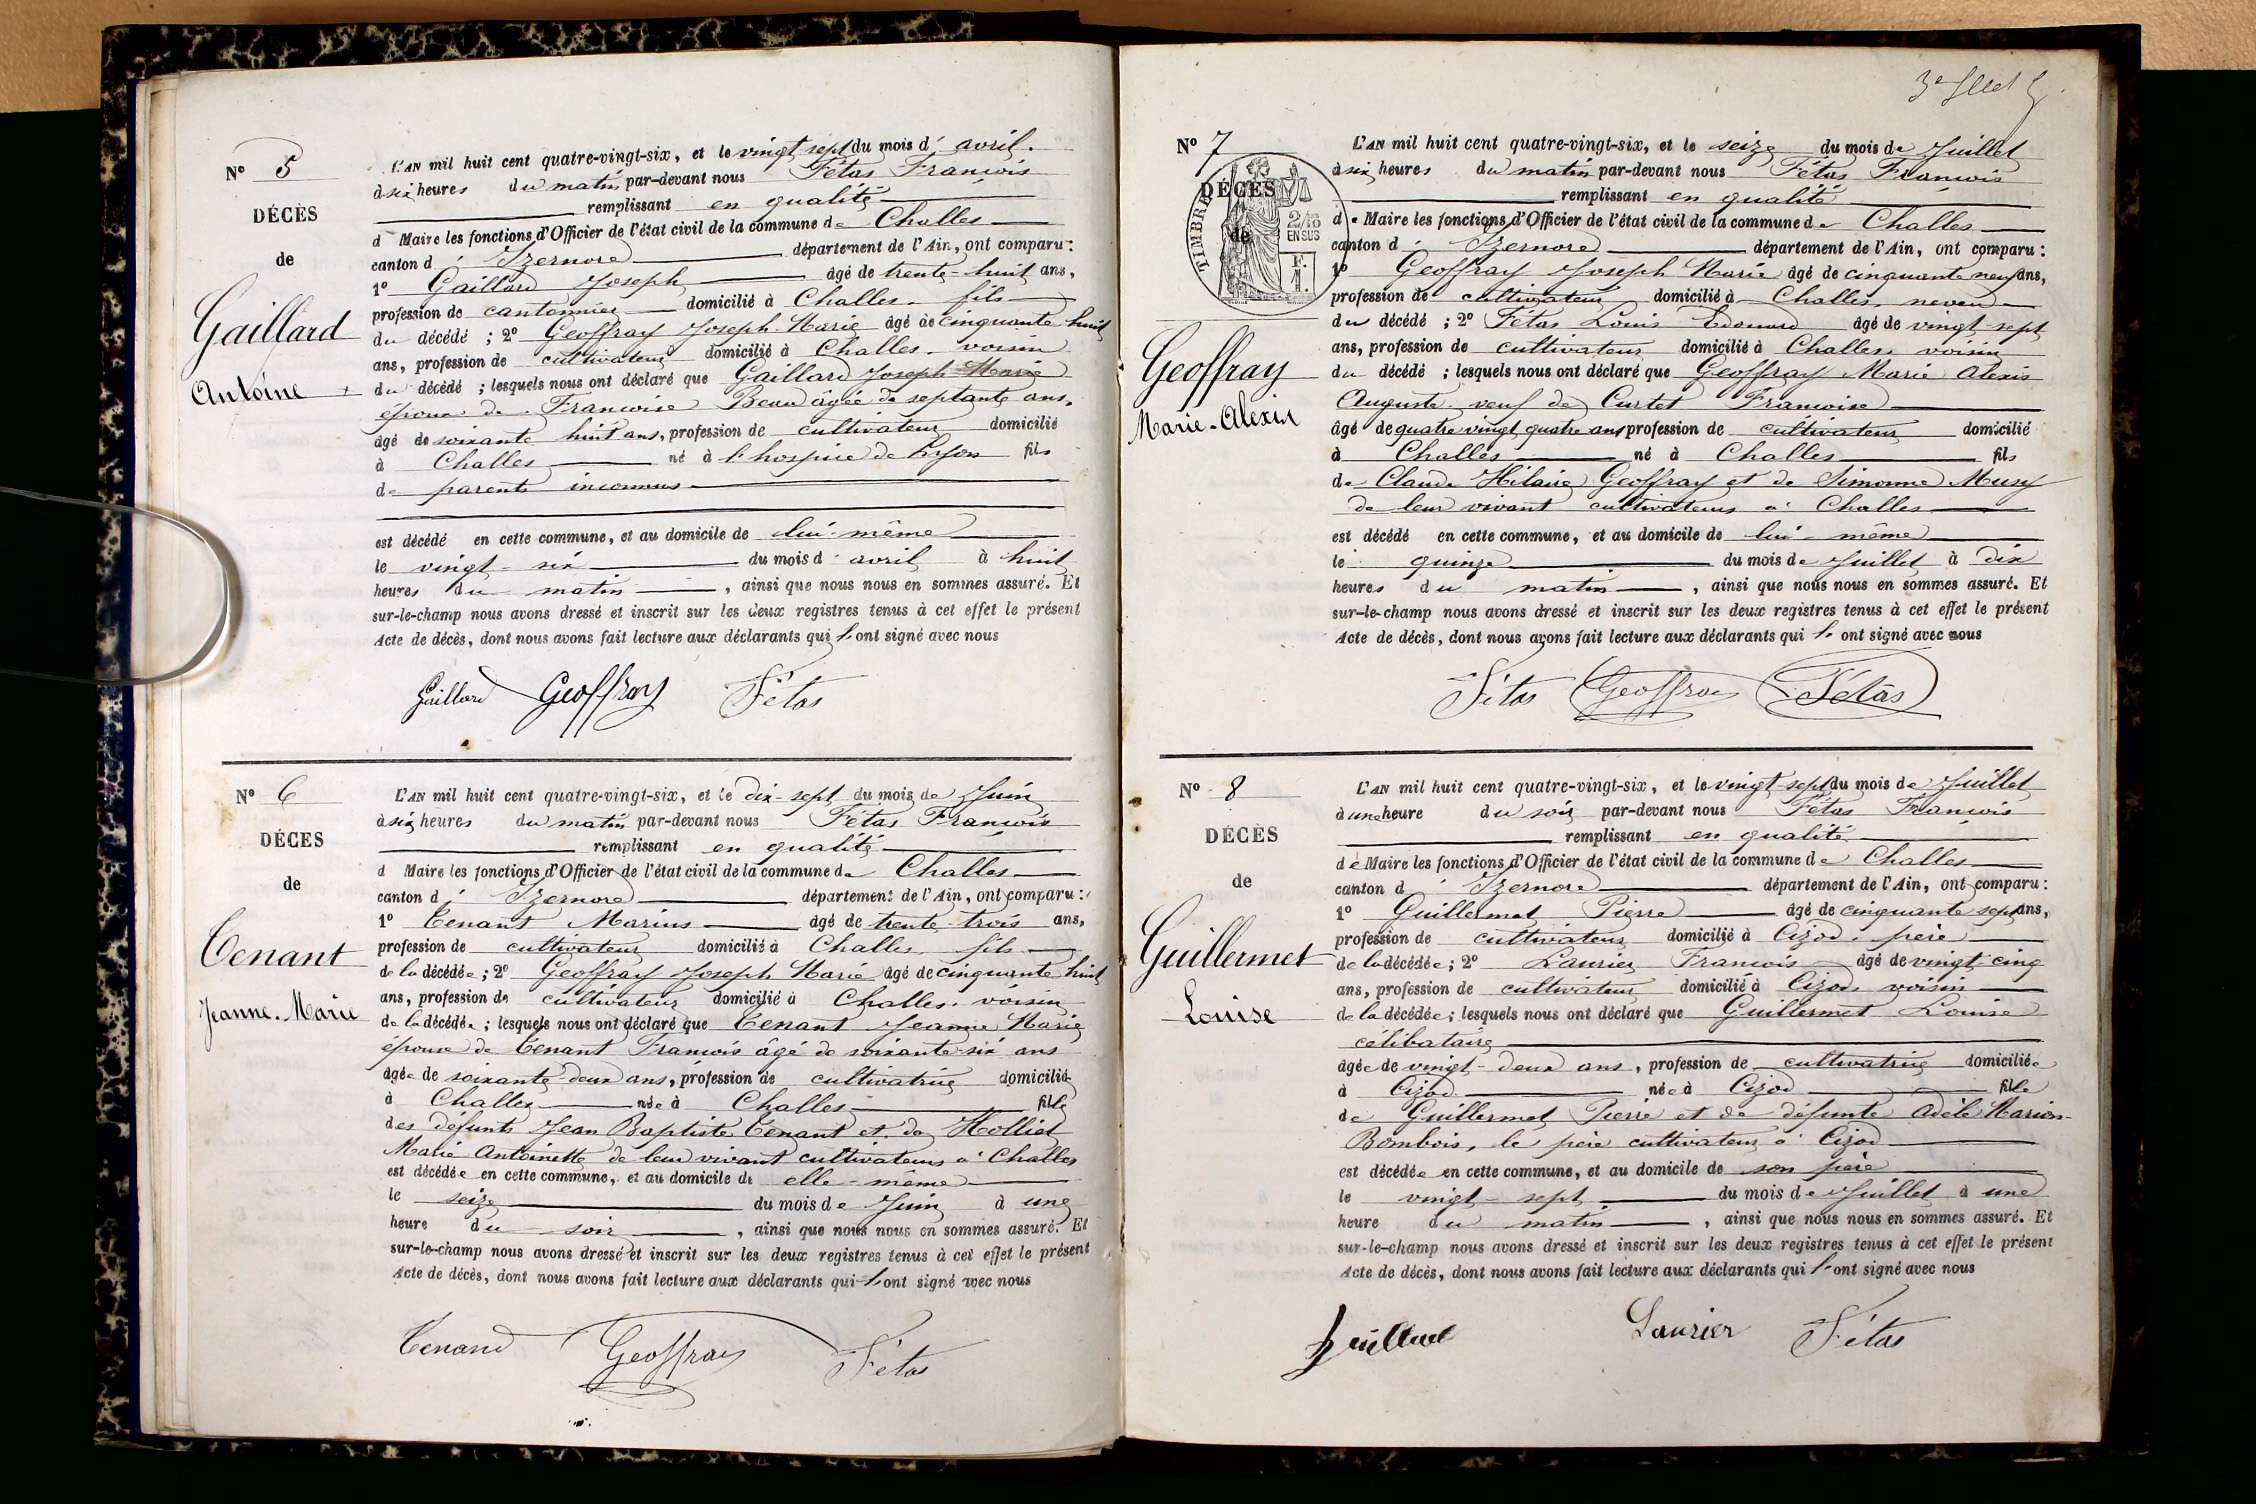 N° 5
DÉCÈS
de
Gaillard
Antoine
L'AN mil huit cent quatre-vingt-six, et le vingt sept du mois d'avril
à six heures du matin par-devant nous Fétas François
remplissant en qualité
d Maire les fonctions d'Officier de l'état civil de la commune de Challes
canton d'Izernore département de l'Ain, ont comparu :
1° Gaillard Joseph âgé de trente-huit ans,
profession de cantonnier domicilié à Challes, fils
du décédé ; 2° Geoffray Joseph-Marie âgé de cinquante huit
ans, profession de cultivateur domicilié à Challes, voisin
du décédé ; lesquels nous ont déclaré que Gaillard Joseph
époux de Françoise Beau agée de septante ans,
âgé de soixante huit ans, profession de cultivateur domicilié
à Challes né à l'hospice de Lyon fils
de parents inconnus
est décédé en cette commune, et au domicile de lui-même
le vingt-six du mois d'avril à huit
heures du matin, ainsi que nous nous en sommes assuré. Et
sur-le-champ nous avons dressé et inscrit sur les deux registres tenus à cet effet le présent
Acte de décès, dont nous avons fait lecture aux déclarants qui l'ont signé avec nous
Gaillard Geoffray Fétas
N° 6
DÉCÈS
de
Tenant
Jeanne-Marie
L'AN mil huit cent quatre-vingt-six, et le dix-sept du mois de Juin
à six heures du matin par-devant nous Fétas François
remplissant en qualité
d Maire les fonctions d'Officier de l'état civil de la commune de Challes
canton d'Izernore département de l'Ain, ont comparu :
1° Tenant Marius âgé de trente-trois ans,
profession de cultivateur domicilié à Challes, fils
de la décédée ; 2° Geoffray Joseph Marie âgé de cinquante huit
ans, profession de cultivateur domicilié à Challes, voisin
de la décédée ; lesquels nous ont déclaré que Tenant Jeanne Marie
épouse de Tenant François âgé de soixante-six ans
âgée de soixante-deux ans, profession de cultivatrice domiciliée
à Challes née à Challes fille
des défunts Jean Baptiste Tenant et de Holliet
Marie Antoinette de leur vivant cultivateurs à Challes
est décédée en cette commune, et au domicile de elle-même
le seize du mois de Juin à une
heure du soir, ainsi que nous nous en sommes assuré. Et
sur-le-champ nous avons dressé et inscrit sur les deux registres tenus à cet effet le présent
Acte de décès, dont nous avons fait lecture aux déclarants qui l'ont signé avec nous
Tenand Geoffray Fétas
N° 7
DÉCÈS
de
TIMBRE
2/10 EN SUS
F. 1.
Geoffray
Marie-Alexis
L'AN mil huit cent quatre-vingt-six, et le seize du mois de Juillet
à six heures du matin par-devant nous Fétas François
remplissant en qualité
de Maire les fonctions d'Officier de l'état civil de la commune de Challes
canton d'Izernore département de l'Ain, ont comparu :
1° Geoffray Joseph Marie âgé de cinquante neuf ans,
profession de cultivateur domicilié à Challes, neveu
du décédé ; 2° Fétas Louis Edouard âgé de vingt-sept
ans, profession de cultivateur domicilié à Challes, voisin
du décédé ; lesquels nous ont déclaré que Geoffray Marie Alexis
Auguste veuf de Curtet Françoise
âgé de quatre vingt quatre ans profession de cultivateur domicilié
à Challes né à Challes fils
de Claude Hilaire Geoffray et de Simonne Musy
de leur vivant cultivateurs à Challes
est décédé en cette commune, et au domicile de lui-même
le quinze du mois de Juillet à dix
heures du matin, ainsi que nous nous en sommes assuré. Et
sur-le-champ nous avons dressé et inscrit sur les deux registres tenus à cet effet le présent
Acte de décès, dont nous avons fait lecture aux déclarants qui l'ont signé avec nous
Fétas Geoffray Fétas
N° 8
DÉCÈS
de
Guillermet
Louise
L'AN mil huit cent quatre-vingt-six, et le vingt-sept du mois de Juillet
à une heure du soir par-devant nous Fétas François
remplissant en qualité
de Maire les fonctions d'Officier de l'état civil de la commune de Challes
canton d'Izernore département de l'Ain, ont comparu :
1° Guillermet Pierre âgé de cinquante sept ans,
profession de cultivateur domicilié à Cizod, père
de la décédée ; 2° Laurier François âgé de vingt-cinq
ans, profession de cultivateur domicilié à Cizod, voisin
de la décédée ; lesquels nous ont déclaré que Guillermet Louise
célibataire
âgée de vingt-deux ans, profession de cultivatrice domiciliée
à Cizod née à Cizod fille
de Guillermet Pierre et de défunte Adèle Marion-
Bombois, le père cultivateur à Cizod
est décédée en cette commune, et au domicile de son père
le vingt-sept du mois de Juillet à une
heure du matin, ainsi que nous nous en sommes assuré. Et
sur-le-champ nous avons dressé et inscrit sur les deux registres tenus à cet effet le présent
Acte de décès, dont nous avons fait lecture aux déclarants qui l'ont signé avec nous
Laurier Fétas